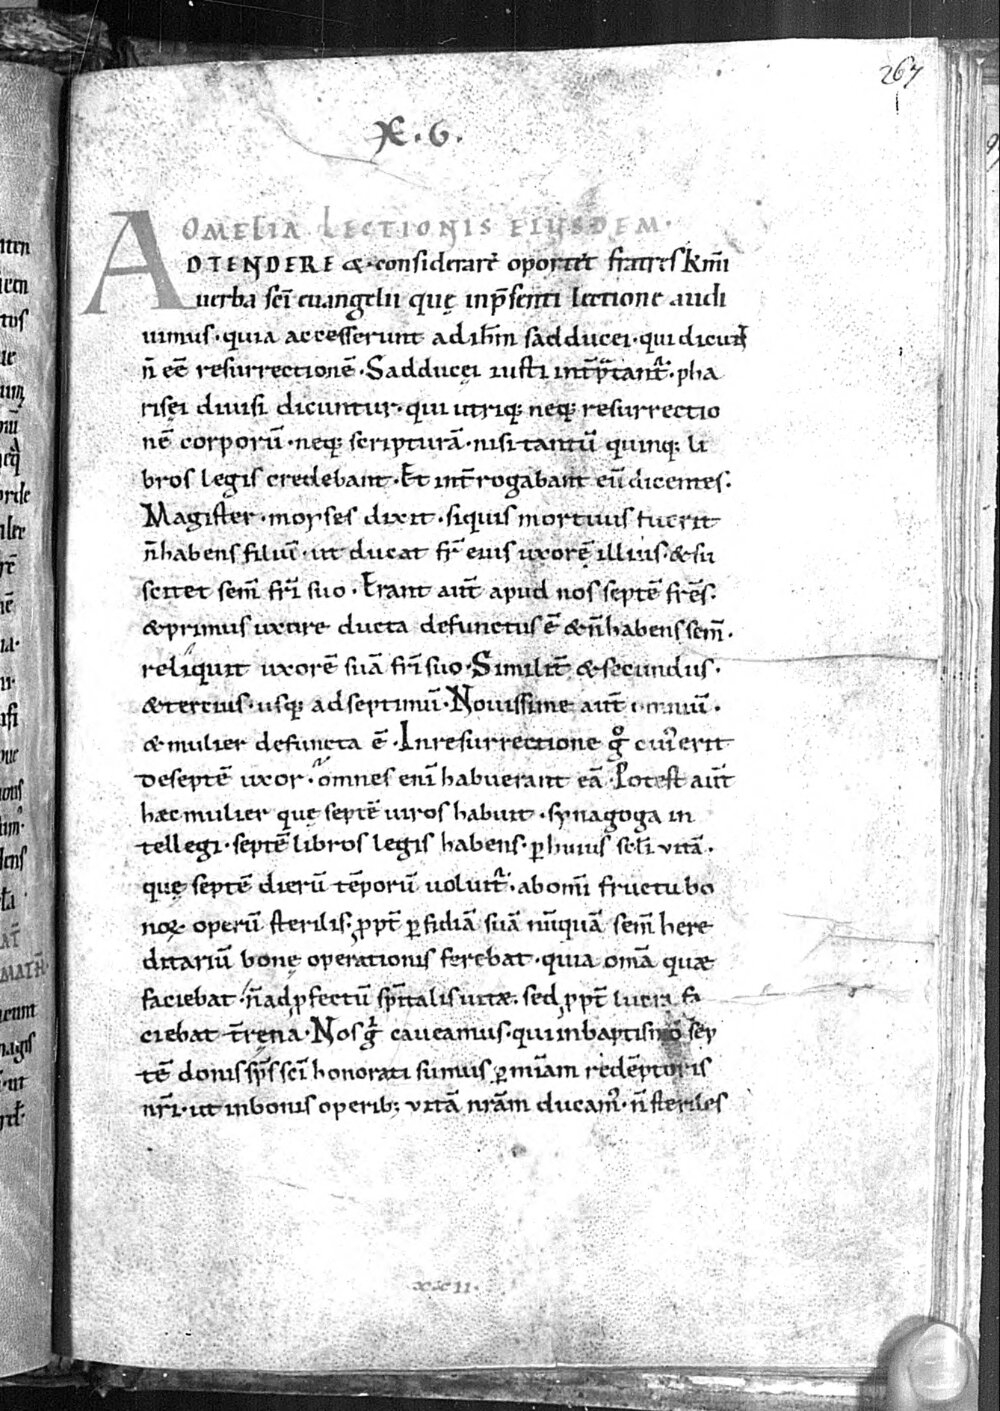 267
X. 6.
OMELIA LECTIONIS EIUSDEM.
ADTENDERE &·considerare oportet fratres kmī
uerba scī euangelii quę inp̄senti lectione audi
uimus·quia accesserunt ad ih̄m sadducei·qui dicunt
n̄ eē resurrectionē·Sadducęi iusti int̄p̄tant᷑·pha
risęi diuisi dicuntur·qui utriq; neq; resurrectio
nē corporū·neq; scripturā·nisi tantū quinq; li
bros legis credebant·Et int̄rogabant eū dicentes:
Magister·moyses dixit·siquis mortuus fuerit
n̄ habens filiū·ut ducat fr̄ eius uxorē illius·& su
scitet sem̄ fr̄i suo·Erant aut̄ apud nos septē fr̄es:
& primus uxore ducta defunctus ē & n̄ habens sem̄.
reliquit uxorē suā fr̄i suo·Similit̄ & secundus·
& tercius·usq; ad septimū·Nouissime aut̄ omniū·
& mulier defuncta ē·In resurrectione gͦ cui᷒ erit
de septē uxor·omnes eni habuerant eā·Potest aut̄
hæc mulier quę septē uiros habuit·synagoga in
tellegi·septē libros legis habens·ꝑ huius sclī vitā·
quę septē dierū tēporū uoluit᷑·abom̄i fructu bo
noꝝ operū sterilis·ꝓpt̄ ꝑfidiā suā nūquā sem̄ here
ditariū bonę operationis ferebat·quia om̄a quæ
faciebat·n̄ ad ꝓfectū sp̄italis uitæ·sed ꝓpt̄ lucra fa
ciebat t̄rena·Nos gͦ caueamus·qui in baptismo sep
tē donis sp̄s scī honorati sumus ꝑ mīam redēptoris
nr̄i·ut in bonis operib; vitā nr̄am ducam᷒·n̄ steriles
xxii.